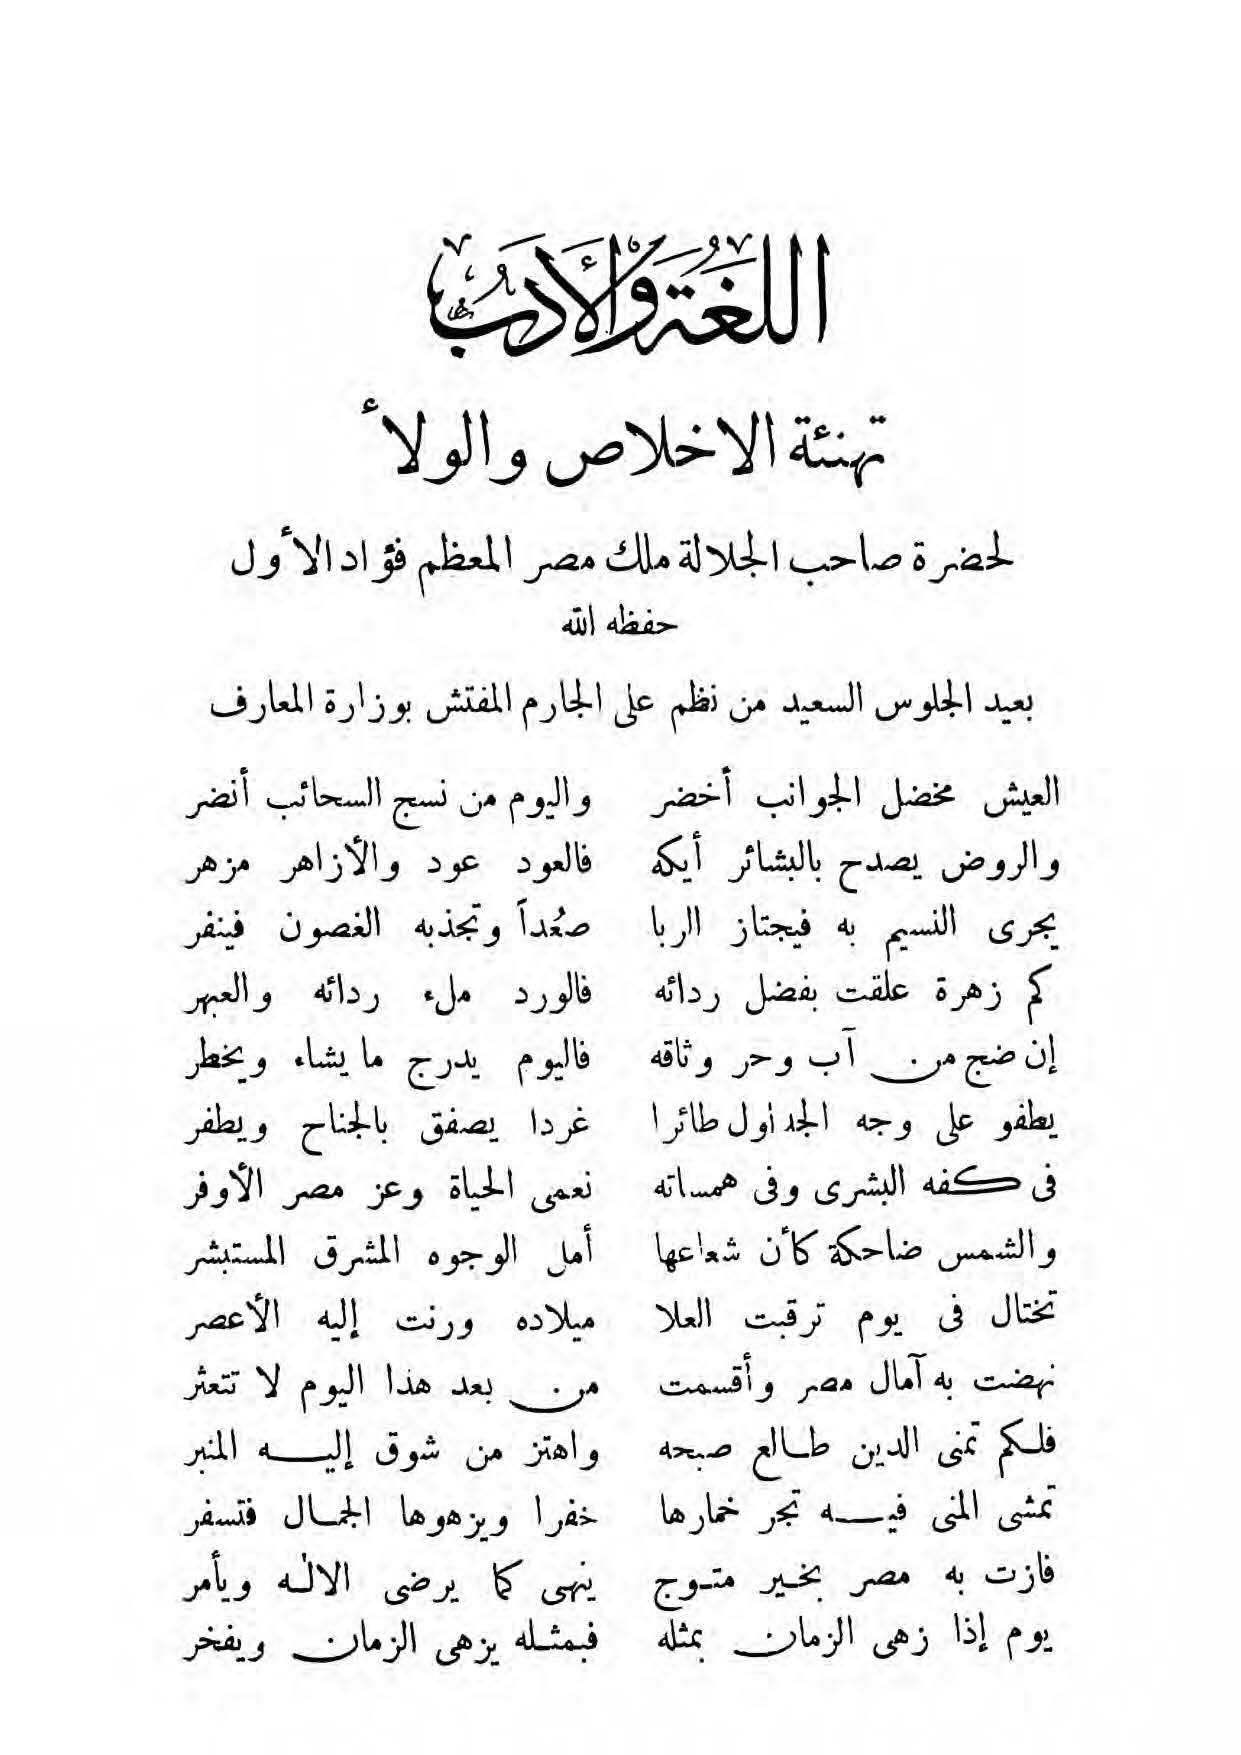 اللغة والأدب
تهنئة الاخلاص والولاء
لحضرة صاحب الجلالة ملك مصر المعظم فؤاد الأول
حفظه الله
بعيد الجلوس السعيد من نظم على الجارم المفتش بوزارة المعارف
العيش مخضل الجوانب أخضر واليوم من نسج السحائب أنضر
والروض يصدح بالبشائر أيكه فالعود عود والأزاهر مزهر
يجرى النسيم به فيجتاز الربا صعُداً وتجذبه الغصون فينفر
كم زهرة علقت بفضل ردائه فالورد ملء ردائه والعبهر
إن ضج من آب وحر وثاقه فاليوم يدرج ما يشاء ويخطر
يطفو على وجه الجداول طائرا غردا يصفق بالجناح ويطفر
فى كفه البشرى وفى همساته نعمى الحياة وعز مصر الأوفر
والشمس ضاحكة كأن شعاعها أمل الوجوه المشرق المستبشر
تختال فى يوم ترقبت العلا ميلاده ورنت إليه الأعصر
نهضت به آمال مصر وأقسمت من بعد هذا اليوم لا تتعثر
فلكم تمنى الدين طالع صبحه واهتز من شوق إليه المنبر
تمشى المنى فيه تجر خمارها خفرا ويزهوها الجمال فتسفر
فازت به مصر بخير متوج ينهى كما يرضى الاله ويأمر
يوم إذا زهى الزمان بمثله فبمثله يزهى الزمان ويفخر